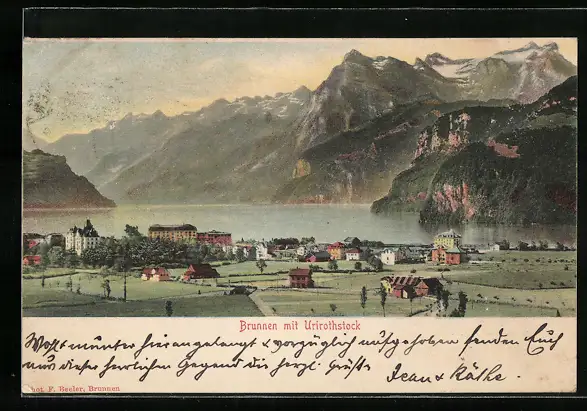 Brunnen mit Urirothstock
Wohl & munter hier angelangt & vorzüglich aufgehoben senden Euch
aus dieser herrlichen Gegend die herzl. Grüße
Jean & Käthe.
Phot. F. Beeler, Brunnen